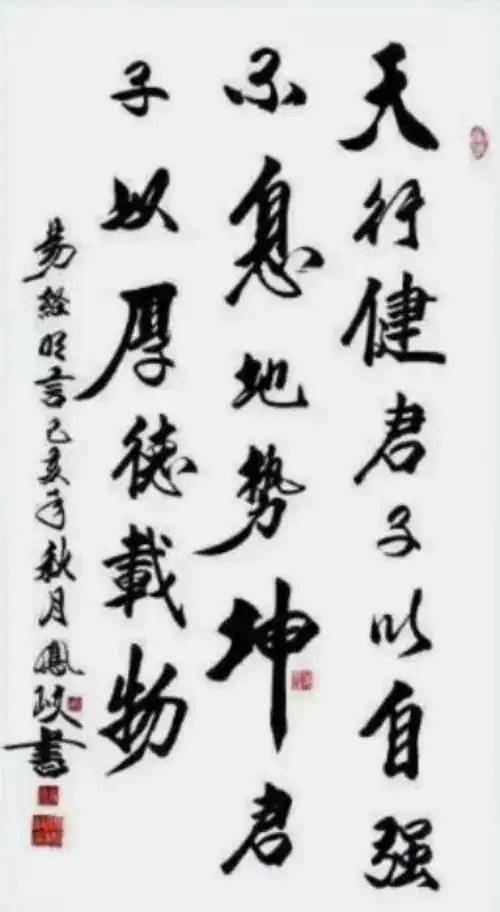 天行健君子以自强
不息地势坤君
子以厚德載物
易経名言己亥年秋月鳳岐書